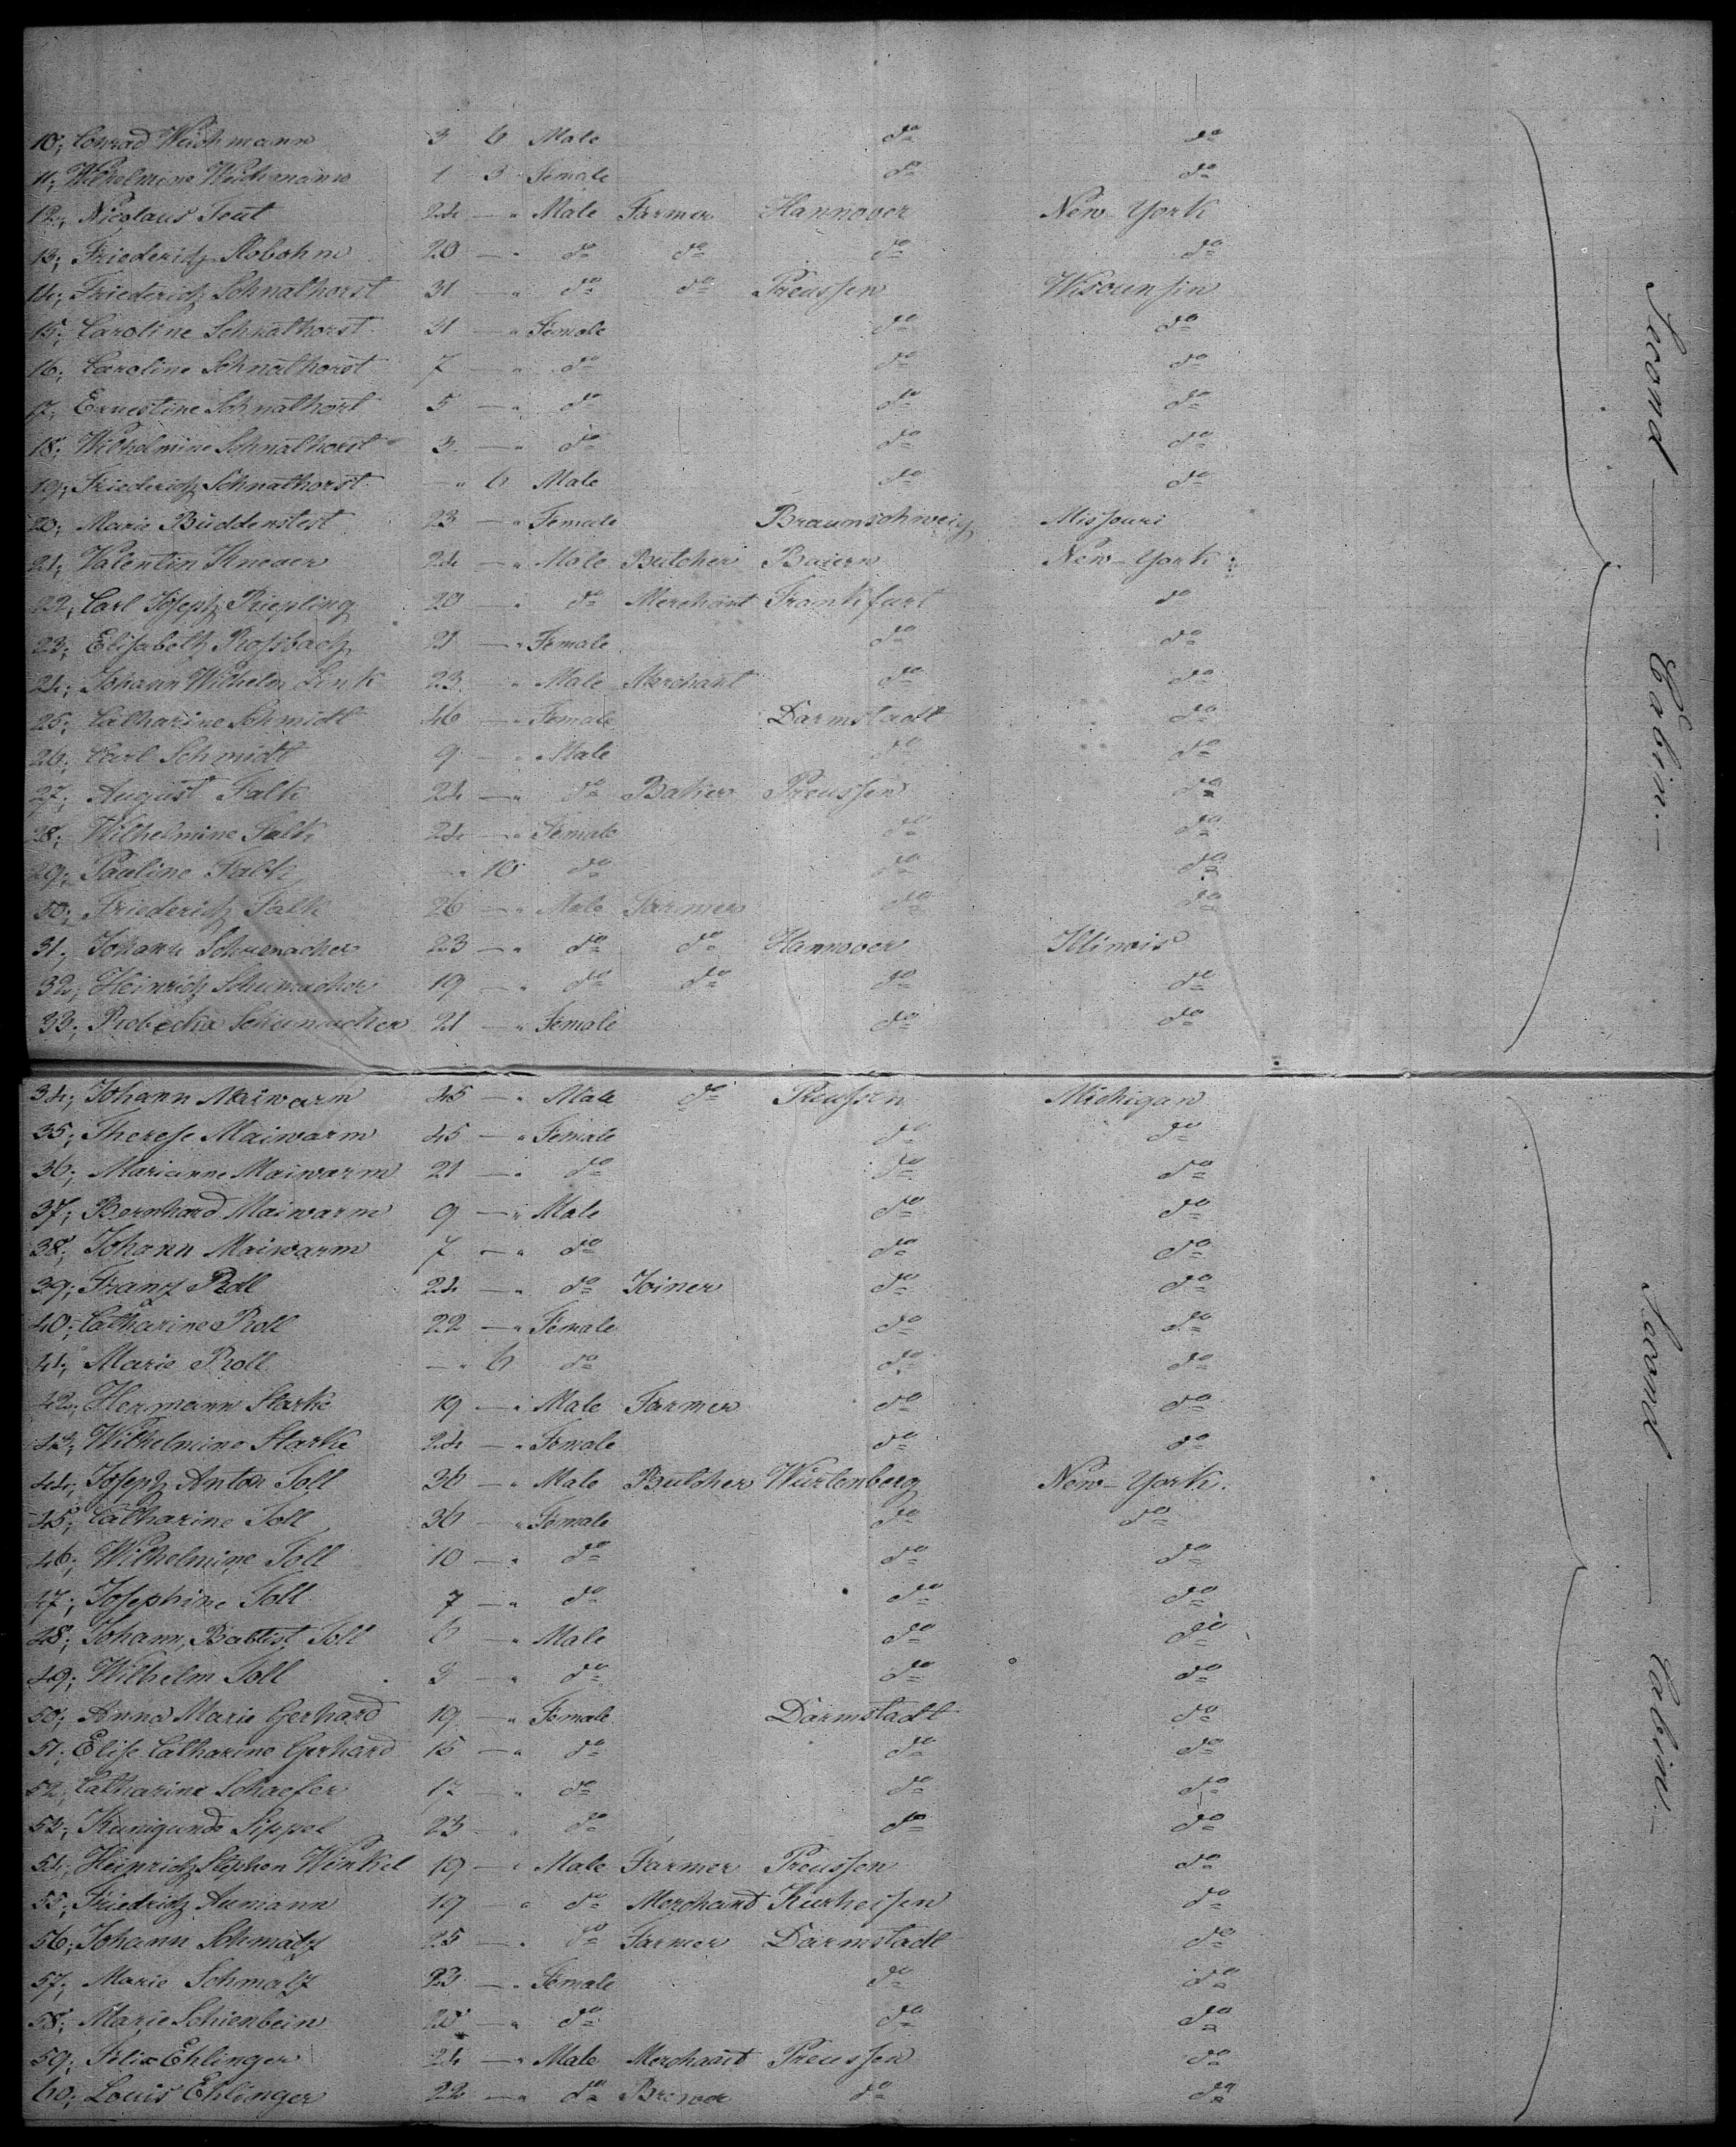 10; Conrad Weichmann 3 6 Male do do
11; Wilhelmine Weichmann 1 3 Female do do
12; Nicolaus Tout 24 — " Male Farmer Hannover New York
13; Friederich Kobohm 20 — " do do do do
14; Friederich Schnathorst 31 " do do Preussen Wisounsin
15; Caroline Schnathorst 31 — " Female do do
16; Caroline Schnathorst 7 — " do do do
17; Ernestine Schnathorst 5 — " do do do
18; Wilhelmine Schnathorst 3 — " do do do
19; Friederich Schnathorst — " 6 Male do do
20; Marie Buddenstest 23 — " Female Braunschweig Missouri
21; Valentin Knever 24 — " Male Butcher Baiern New-York
22; Carl Joseph Riepling 20 — " do Merchant Frankfurt do
23; Elisabeth Rossbach 21 — " Female do do
24; Johann Wilhelm Link 23 " Male Merchant do do
25; Catharine Schmidt 46 — " Female Darmstadt do
26; Carl Schmidt 9 — " Male do do
27; August Falk 24 — " do Baker Preussen do
28; Wilhelmine Falk 24 — " Female do do
29; Pauline Falk — " 10 do do do
30; Friederich Falk 26 — " Male Farmer do do
31; Johann Schumacher 23 — " do do Hannover Illinois
32; Heinrich Schumacher 19 — " do do do do
33; Rebecka Schumacher 21 — " Female do do
Second — Cabin. —
34; Johann Maiwarm 45 — " Male do Preussen Michigan
35; Therese Maiwarm 45 — " Female do do
36; Marianne Maiwarm 21 — " do do do
37; Bernhard Maiwarm 9 — " Male do do
38; Johann Maiwarm 7 — " do do do
39; Franz Roll 24 — " do Joiner do do
40; Catharine Roll 22 — " Female do do
41; Marie Roll — " 6 do do do
42; Hermann Starke 19 — " Male Farmer do do
43; Wilhelmine Starke 24 — " Female do do
44; Joseph Anton Toll 36 — " Male Butcher Wurtenberg New-York.
45; Catharine Toll 36 — " Female do do
46; Wilhelmine Toll 10 — " do do do
47; Josephine Toll 7 — " do do do
48; Johann Babtist Toll 6 — " Male do do
49; Wilhelm Toll 3 — " do do do
50; Anna Marie Gerhard 19 — " Female Darmstadt do
51; Elise Catharine Gerhard 15 — " do do do
52; Catharine Schaefer 17 — " do do do
53; Kunigunde Sippel 23 — " do do do
54; Heinrich Stephen Winkel 19 — " Male Farmer Preussen do
55; Friedrich Aumann 19 — " do Merchant Kurhessen do
56; Johann Schmalz 25 — " do Farmer Darmstadt do
57; Marie Schmalz 23 — " Female do do
58; Marie Schienbein 20 — " do do do
59; Felix Ehlinger 24 — " Male Merchant Preussen do
60; Louis Ehlinger 22 — " do Brewer do do
Second — Cabin. —